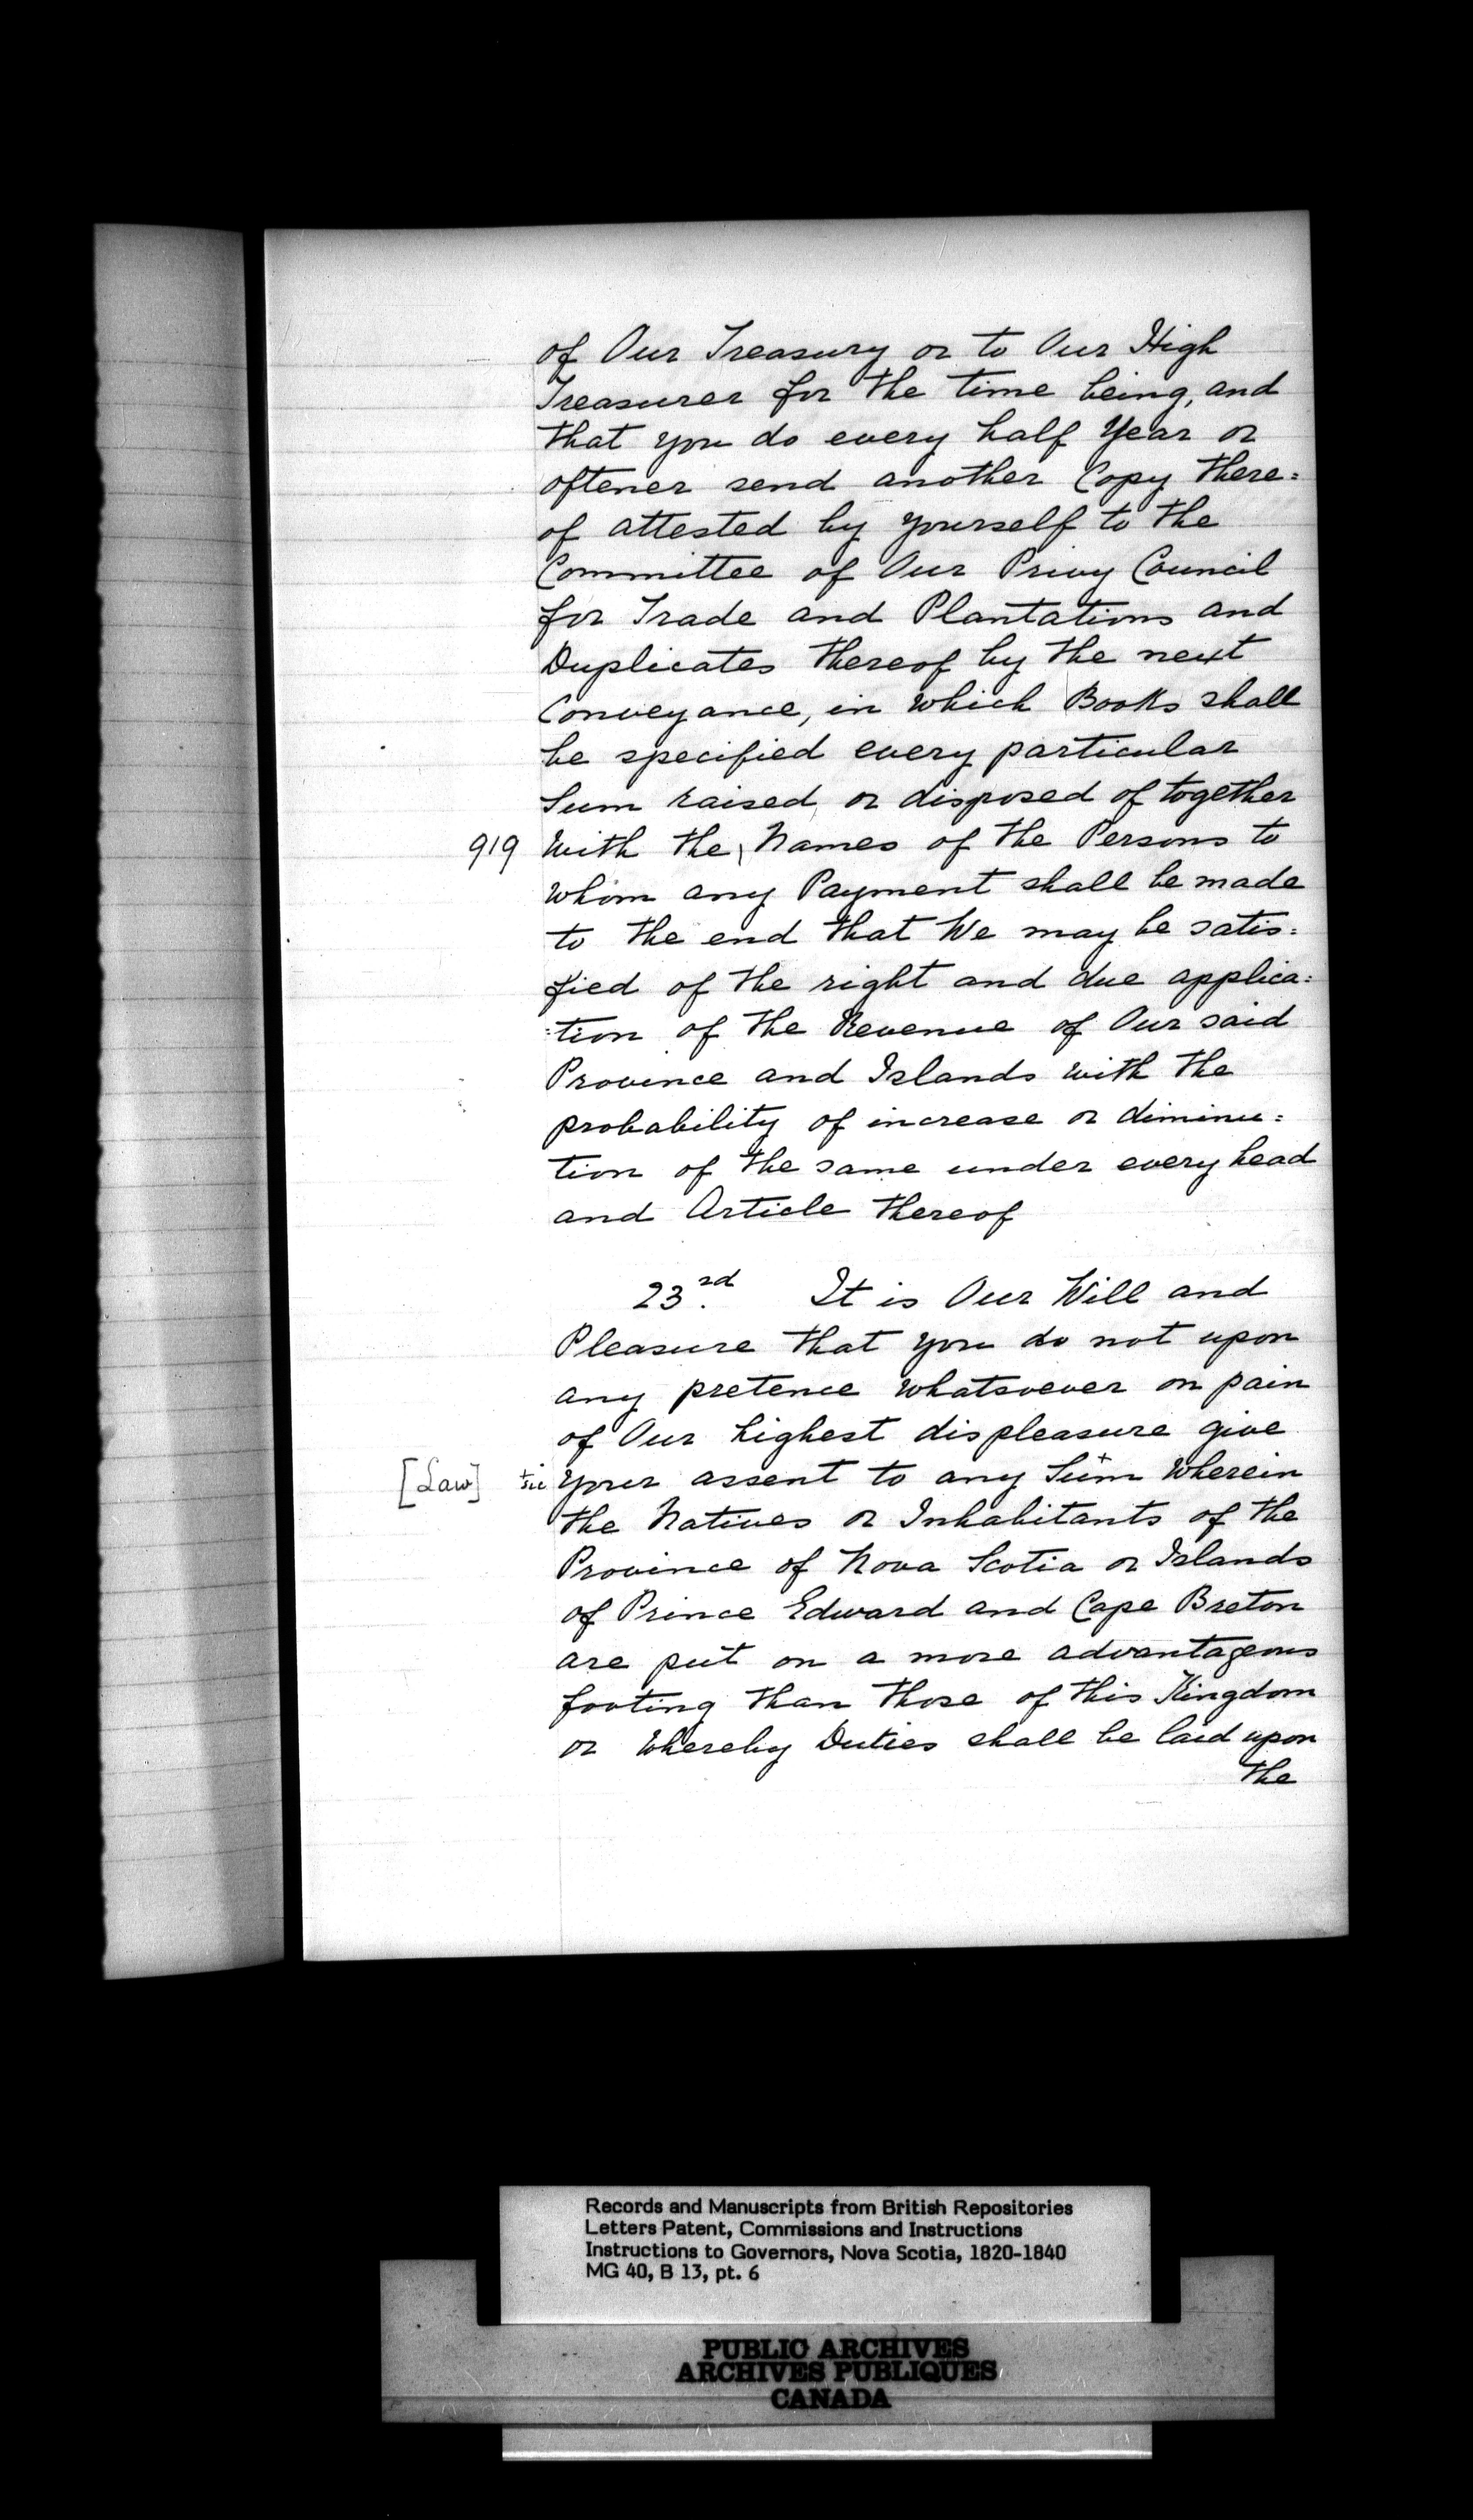 of Our Treasury or to Our High
Treasurer for the time being, and
that you do every half Year or
oftener send another Copy there=
of attested by yourself to the
Committee of Our Privy Council
for Trade and Plantations and
Duplicates thereof by the next
Conveyance, in which Books shall
be specified every particular
Sum raised, or disposed of together
919 with the | Names of the Persons to
whom any Payment shall be made
to the end that We may be satis=
fied of the right and due applica=
=tion of the Revenue of Our said
Province and Islands with the
probability of increase or diminu=
tion of the same under every head
and Article thereof
23rd. It is Our Will and
Pleasure that you do not upon
any pretence whatsoever on pain
of Our highest displeasure give
[Law] + sic your assent to any Sum + wherein
the Natives or Inhabitants of the
Province of Nova Scotia or Islands
of Prince Edward and Cape Breton
are put on a more advantageous
footing than those of this Kingdom
or whereby Duties shall be laid upon
the
Records and Manuscripts from British Repositories
Letters Patent, Commissions and Instructions
Instructions to Governors, Nova Scotia, 1820-1840
MG 40, B 13, pt. 6
PUBLIC ARCHIVES
ARCHIVES PUBLIQUES
CANADA